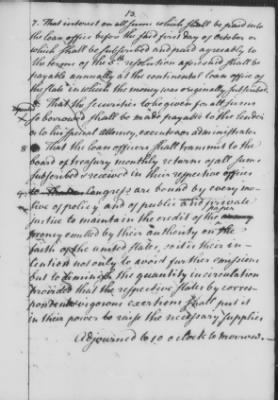 13.
7. That interest on all sums which shall be paid into
the loan office before the said first day of October or
which shall be subscribed and paid agreeably to
the terms of the 2th resolution aforesaid shall be
payable annually at the continental loan office of
the state in which the money was originally subscribed.
8. That the securities to be given for all sums
so borrowed shall be made payable to the lender
or to his special attorney, executor or administrator
That the loan officers shall transmit to the
board of treasury monthly returns of all sums
subscribed & received in their respective offices
Congress are bound by every mo-
tive of policy and of public and private
justice to maintain the credit of the paper
money emitted by their authority on the
faith of the united states, so it is their in-
tention not only to avoid further emissions
but to diminish the quantity in circulation
provided that the respective states by corres-
pondent vigorous exertions shall put it
in their power to raise the necessary supplies
Adjourned to 10 o clock to morrow.